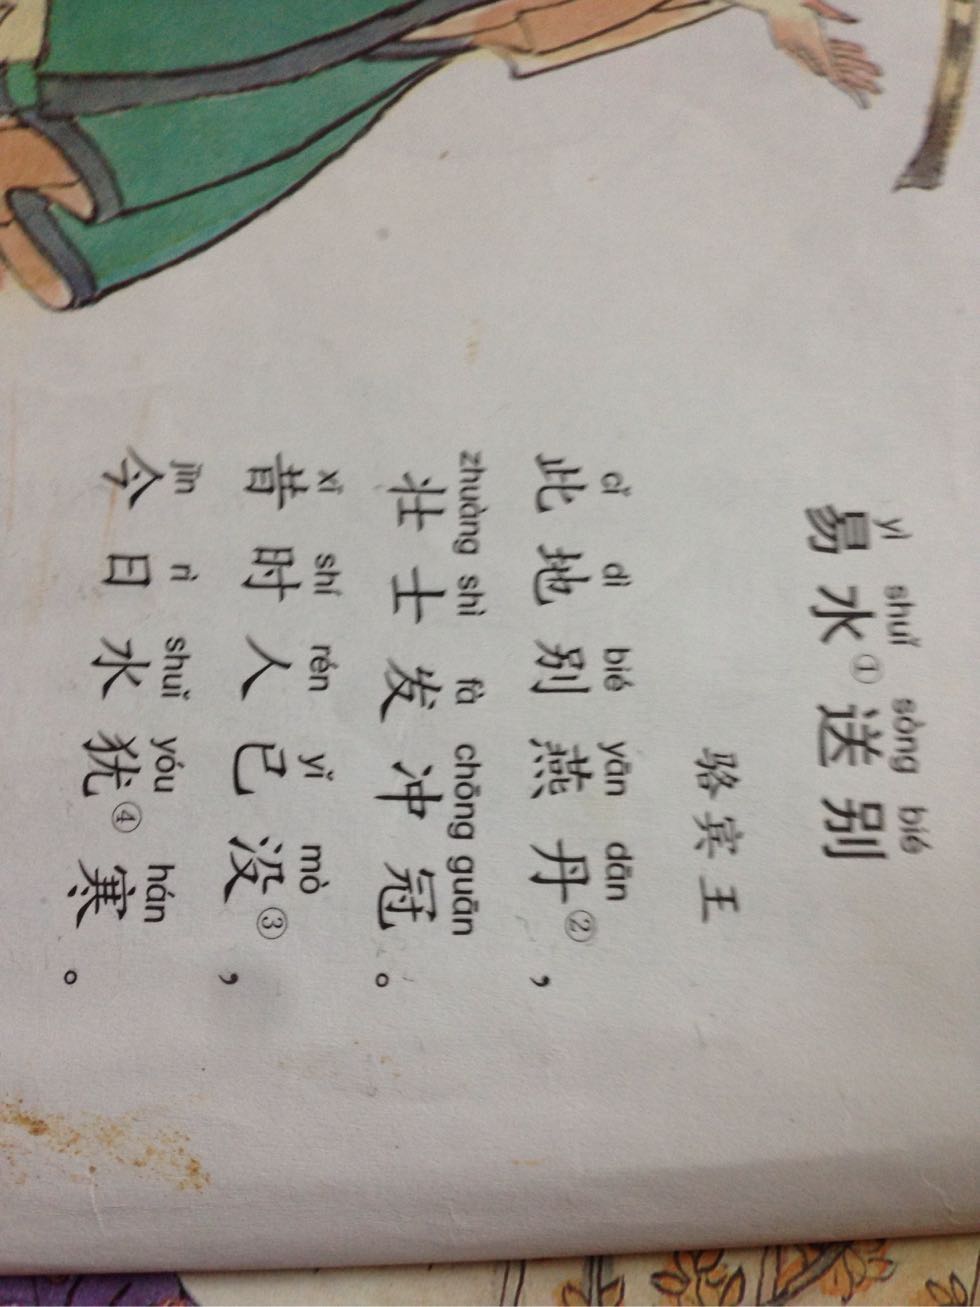 yì shuǐ sòng bié
易水①送别
骆宾王
cǐ dì bié yān dān
此地别燕丹②，
zhuàng shì fà chōng guān
壮士发冲冠。
xī shí rén yǐ mò
昔时人已没③，
jīn rì shuǐ yóu hán
今日水犹④寒。